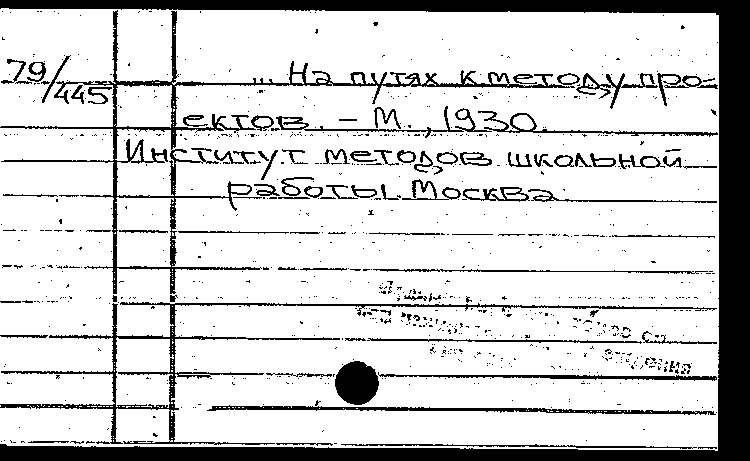 79/445 ... На путях к методу про-
ектов. – М., 1930.
Институт методов школьной
работы. Москва